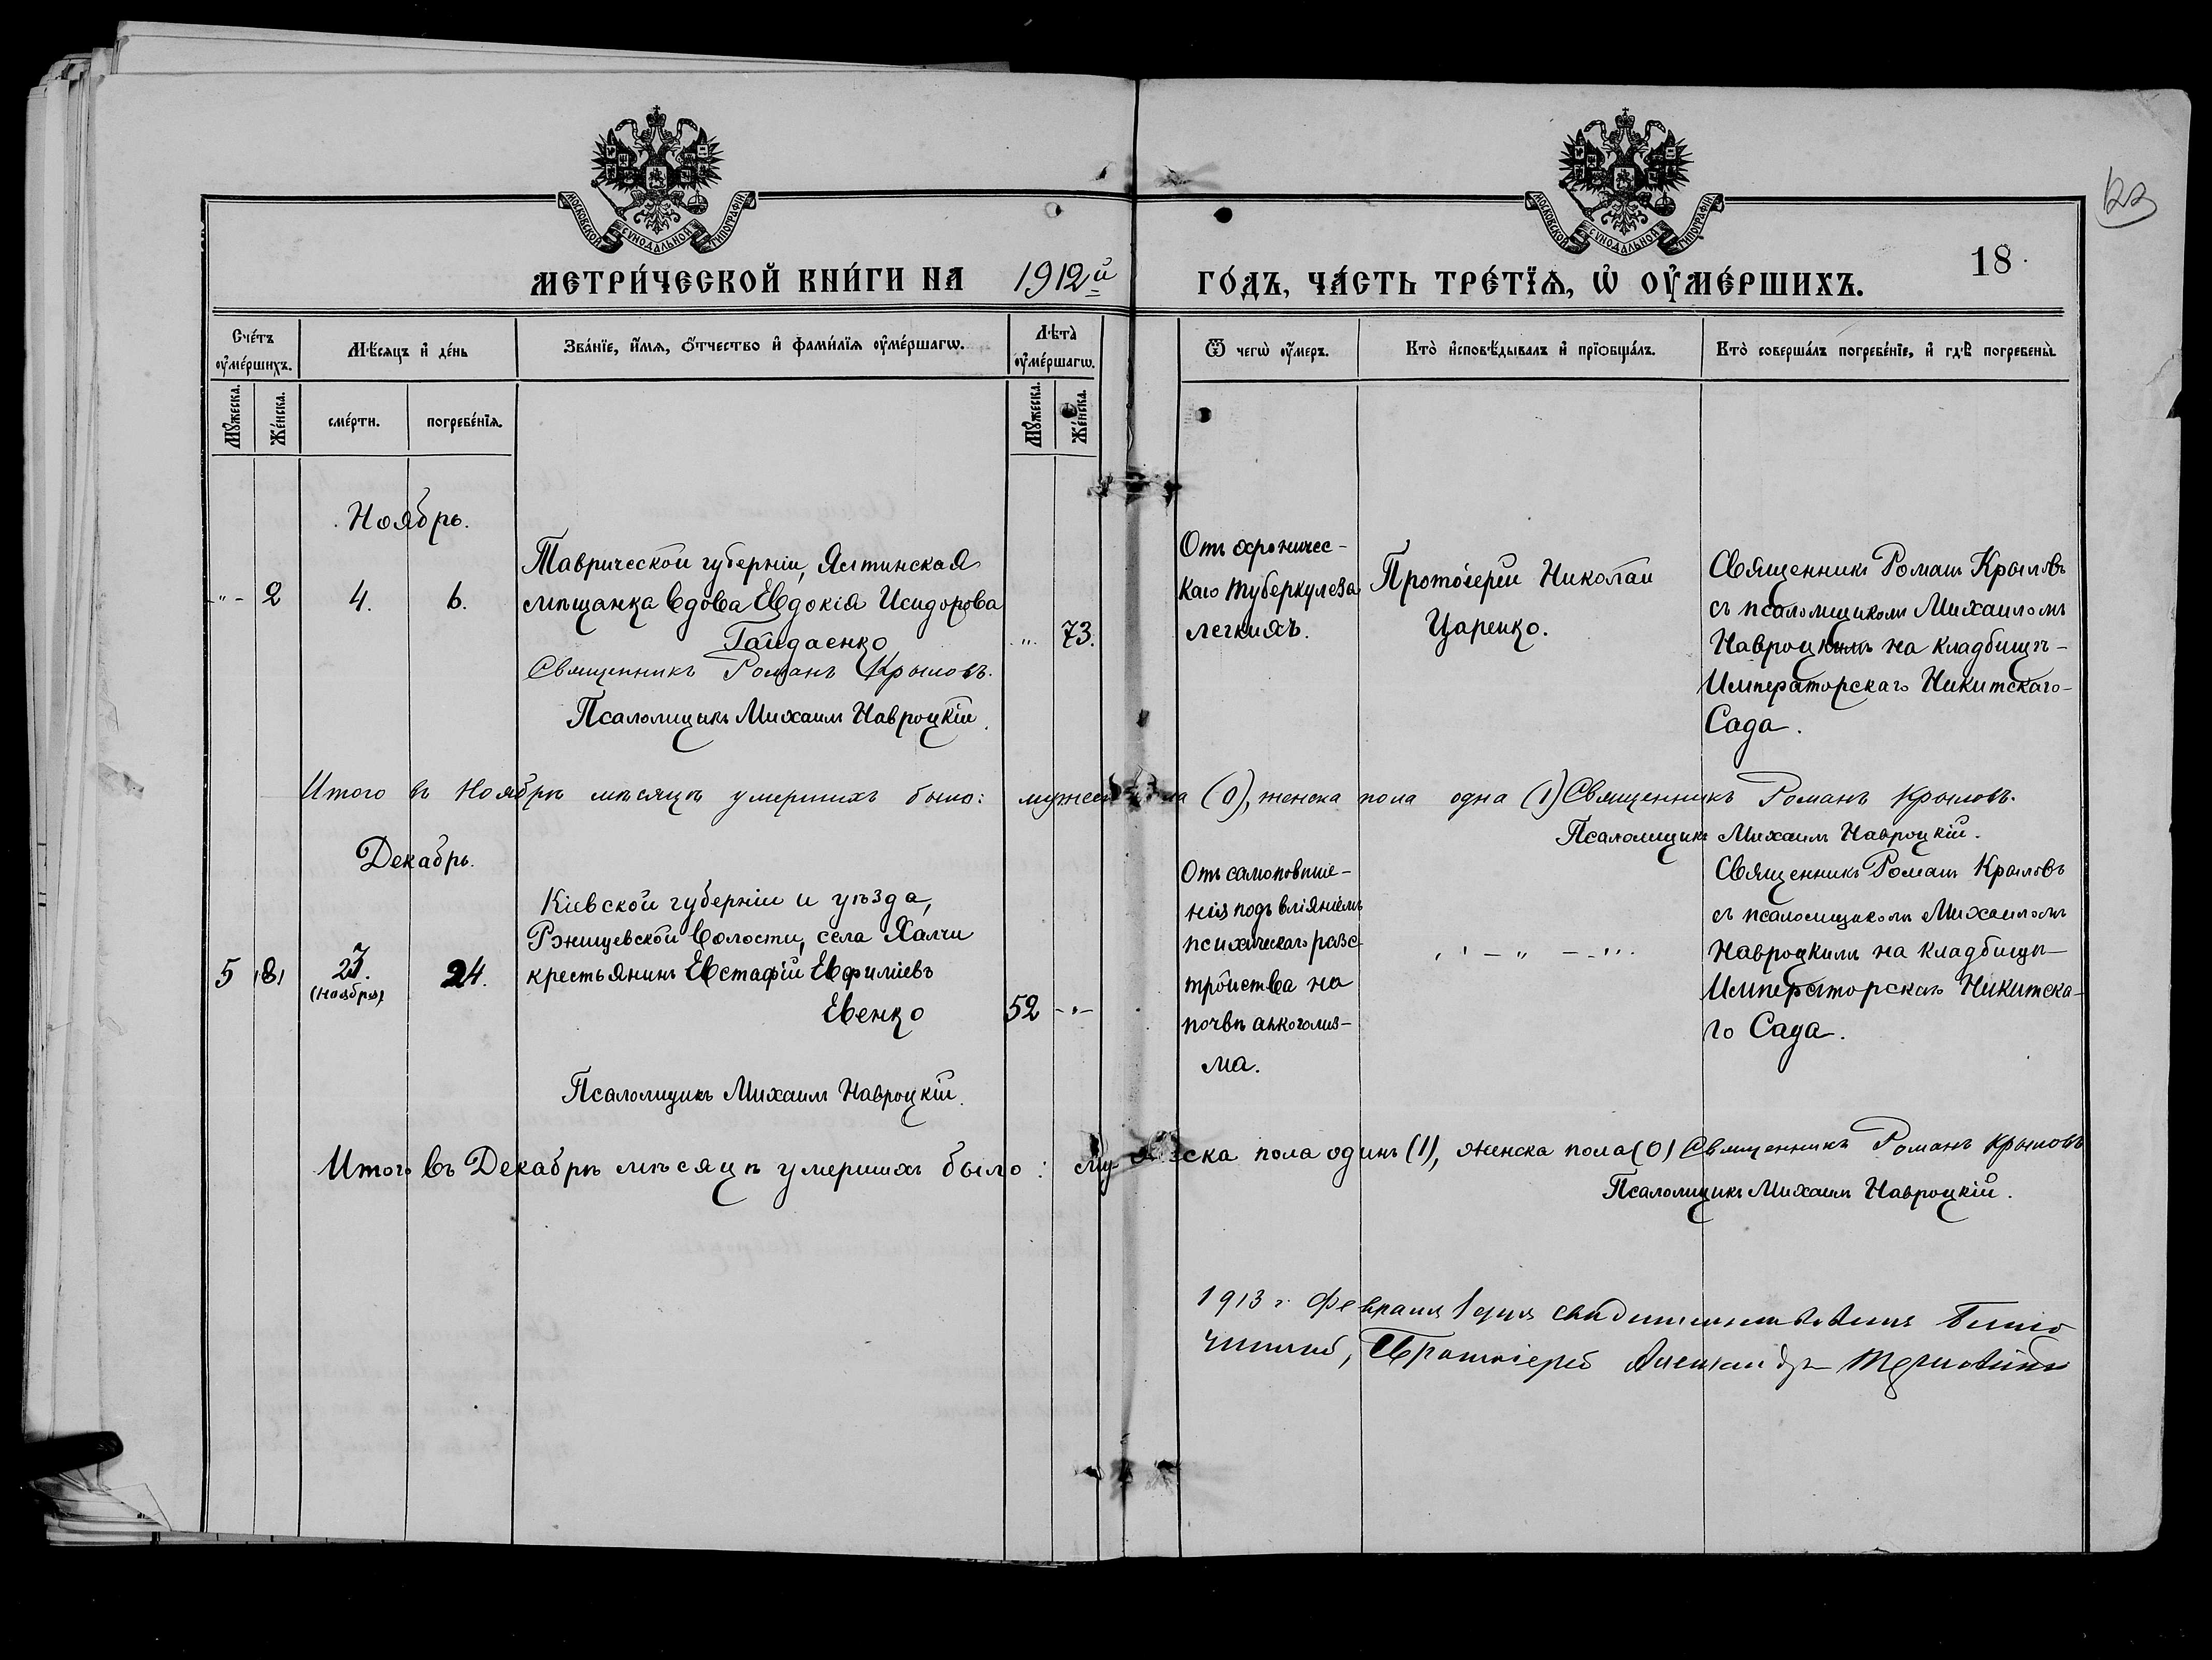 122
МОСКОВСКОЙ СУНОДАЛЬНОЙ ТИПОГРАФІИ
МОСКОВСКОЙ СУНОДАЛЬНОЙ ТИПОГРАФІИ
18.
МЕТРИ́ЧЕСКОЙ КНИ́ГИ НА 1912й ГО́ДЪ, ЧА́СТЬ ТРЕ́ТЇѦ, Ѽ ОУ҆МЕ́РШИХЪ.
Сче́тъ оу҆ме́ршихъ.
Мѣ́сяцъ и҆ де́нь
Зва́нїе, и҆́мѧ, ѻ҆́тчество и҆ фами́лїѧ оу҆ме́ршагѡ.
Лѣ̀та оу҆ме́ршагѡ.
Ѿ чегѡ̀ оу҆́меръ.
Кто̀ и҆сповѣ́дывалъ и҆ прїѡбща́лъ.
Кто̀ соверша́лъ погребе́нїе, и҆ гдѣ̀ погребены̀.
Мꙋ́жеска.
Же́нска.
сме́рти.
погребе́нїѧ.
Мꙋ́жеска.
Же́нска.
Ноябрь.
-"- 2 4. 6.
Таврической губерніи, Ялтинская
мѣщанка вдова Евдокія Исидорова
Гайдаенко
" 73.
Священникъ Романъ Крыловъ.
Псаломщикъ Михаилъ Навроцкій.
Отъ хроничес-
каго туберкулеза
легкихъ.
Протоіерей Николай
Царенко.
Священникъ Романъ Крыловъ
съ псаломщикомъ Михаиломъ
Навроцкимъ на кладбищѣ-
Императорскаго Никитскаго-
Сада.
Итого въ Ноябрѣ мѣсяцѣ умершихъ было: мужеска пола (0), женска пола одна (1) Священникъ Романъ Крыловъ.
Псаломщикъ Михаилъ Навроцкій.
Декабрь.
5 23. (Ноября) 24.
Кіевской губерніи и уѣзда,
Ржищевской волости, села Халчи
крестьянинъ Евстафій Евфиміевъ
Евенко
52 -"-
Псаломщикъ Михаилъ Навроцкій.
Отъ самоповѣше-
нія подъ вліяніемъ
психическаго разс-
тройства на
почвѣ алкоголиз-
ма.
" - " - "
Священникъ Романъ Крыловъ
съ псаломщикомъ Михаиломъ
Навроцкимъ на кладбищѣ-
Императорскаго Никитска-
го Сада.
Итого въ Декабрѣ мѣсяцѣ умершихъ было: мужеска пола одинъ (1), женска пола (0) Священникъ Романъ Крыловъ
Псаломщикъ Михаилъ Навроцкій.
1913 г. Февраля 1 дня
Протоіерей Александръ